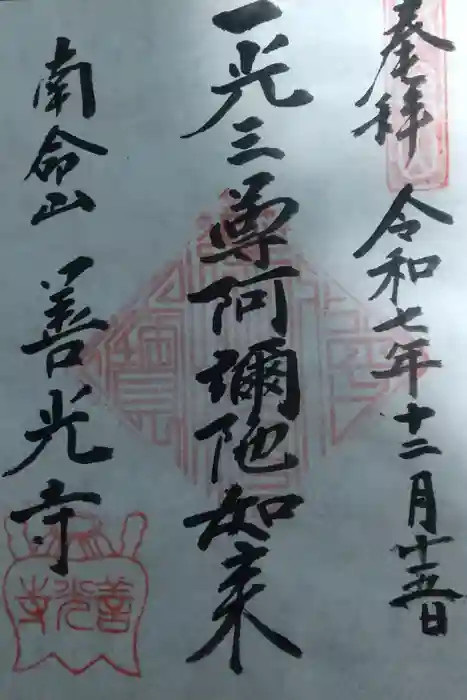 奉拝
令和七年十二月十五日
一光三尊阿彌陀如来
南命山 善光寺
善光寺